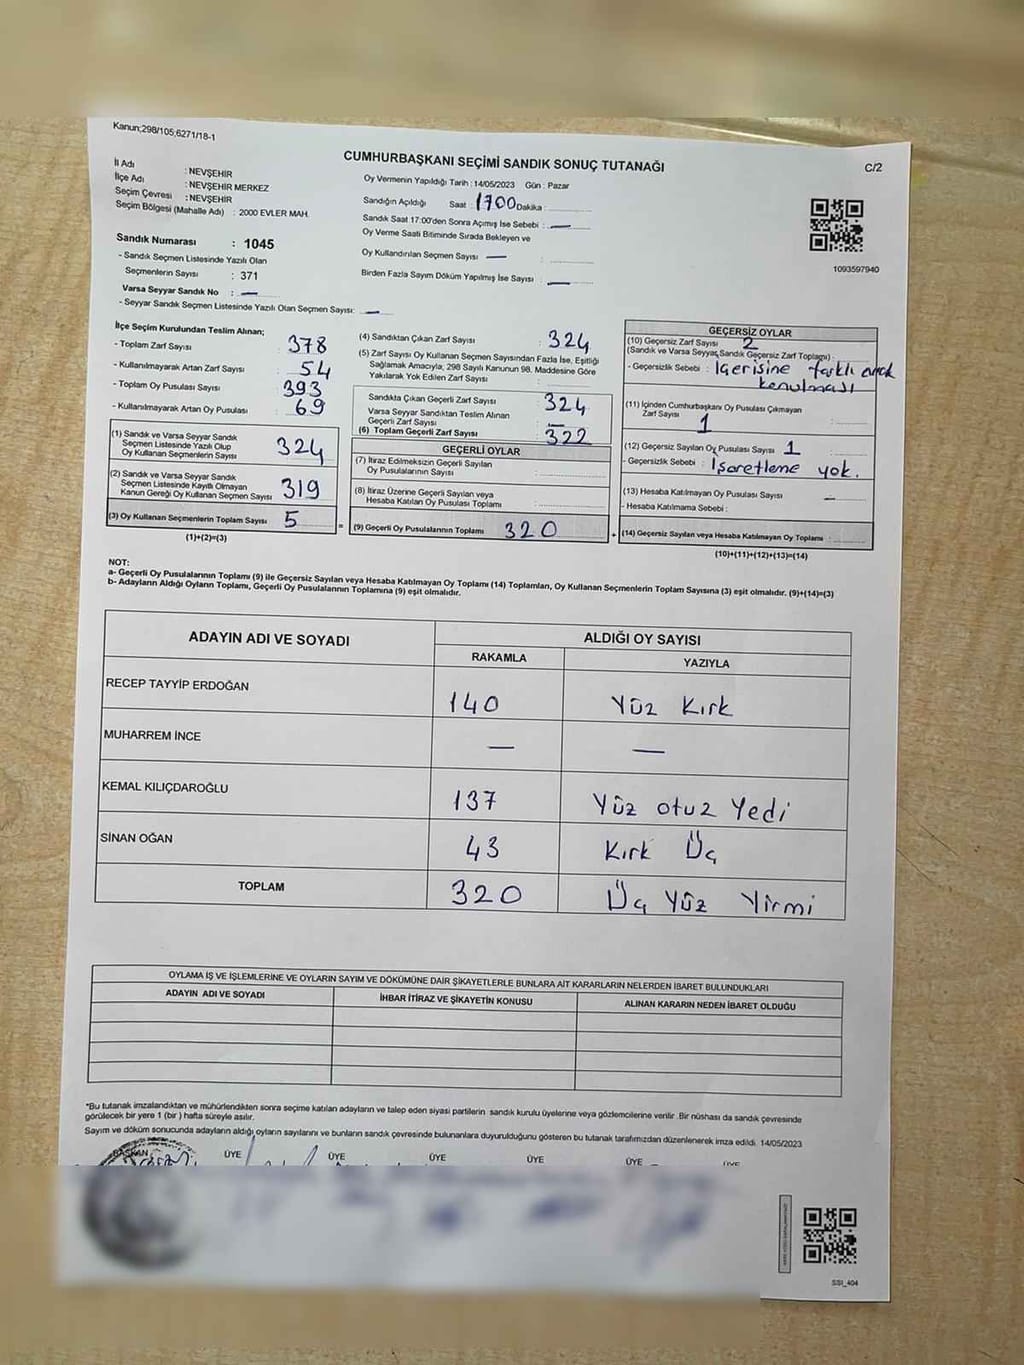 Kanun;298/105;6271/18-1
CUMHURBAŞKANI SEÇİMİ SANDIK SONUÇ TUTANAĞI
C/2
İl Adı : NEVŞEHİR
İlçe Adı : NEVŞEHİR MERKEZ
Seçim Çevresi : NEVŞEHİR
Seçim Bölgesi (Mahalle Adı) : 2000 EVLER MAH.
Sandık Numarası : 1045
- Sandık Seçmen Listesinde Yazılı Olan
Seçmenlerin Sayısı : 371
Varsa Seyyar Sandık No : —
- Seyyar Sandık Seçmen Listesinde Yazılı Olan Seçmen Sayısı: —
Oy Vermenin Yapıldığı Tarih : 14/05/2023 Gün : Pazar
Sandığın Açıldığı Saat : 1700 Dakika :
Sandık Saat 17:00'den Sonra Açımış İse Sebebi : —
Oy Verme Saati Bitiminde Sırada Bekleyen ve
Oy Kullandırılan Seçmen Sayısı — :
Birden Fazla Sayım Döküm Yapılmış İse Sayısı : —
1093597940
İlçe Seçim Kurulundan Teslim Alınan;
- Toplam Zarf Sayısı : 378
- Kullanılmayarak Artan Zarf Sayısı : 54
- Toplam Oy Pusulası Sayısı : 393
- Kullanılmayarak Artan Oy Pusulası : 69
(1) Sandık ve Varsa Seyyar Sandık
Seçmen Listesinde Yazılı Olup
Oy Kullanan Seçmenlerin Sayısı : 324
(2) Sandık ve Varsa Seyyar Sandık
Seçmen Listesinde Kayıtlı Olmayan
Kanun Gereği Oy Kullanan Seçmen Sayısı : 319
(3) Oy Kullanan Seçmenlerin Toplam Sayısı : 5
(1)+(2)=(3)
(4) Sandıktan Çıkan Zarf Sayısı : 324
(5) Zarf Sayısı Oy Kullanan Seçmen Sayısından Fazla İse, Eşitliği
Sağlamak Amacıyla, 298 Sayılı Kanunun 98. Maddesine Göre
Yakılarak Yok Edilen Zarf Sayısı :
Sandıkta Çıkan Geçerli Zarf Sayısı : 324
Varsa Seyyar Sandıktan Teslim Alınan
Geçerli Zarf Sayısı : —
(6) Toplam Geçerli Zarf Sayısı : 322
GEÇERLİ OYLAR
(7) İtiraz Edilmeksizin Geçerli Sayılan
Oy Pusulalarının Sayısı :
(8) İtiraz Üzerine Geçerli Sayılan veya
Hesaba Katılan Oy Pusulaları Toplamı :
= (9) Geçerli Oy Pusulalarının Toplamı : 320
GEÇERSİZ OYLAR
(10) Geçersiz Zarf Sayısı 2
(Sandık ve Varsa Seyyar Sandık Geçersiz Zarf Toplamı) :
- Geçersizlik Sebebi : İçerisine farklı evrak
konulması
(11) İçinden Cumhurbaşkanı Oy Pusulası Çıkmayan
Zarf Sayısı 1 :
(12) Geçersiz Sayılan Oy Pusulası Sayısı 1 :
- Geçersizlik Sebebi : İşaretleme yok.
(13) Hesaba Katılmayan Oy Pusulası Sayısı : —
- Hesaba Katılmama Sebebi :
+ (14) Geçersiz Sayılan veya Hesaba Katılmayan Oy Toplamı :
(10)+(11)+(12)+(13)=(14)
NOT:
a- Geçerli Oy Pusulalarının Toplamı (9) ile Geçersiz Sayılan veya Hesaba Katılmayan Oy Toplamı (14) Toplamları, Oy Kullanan Seçmenlerin Toplam Sayısına (3) eşit olmalıdır. (9)+(14)=(3)
b- Adayların Aldığı Oyların Toplamı, Geçerli Oy Pusulalarının Toplamına (9) eşit olmalıdır.
ADAYIN ADI VE SOYADI ALDIĞI OY SAYISI
RAKAMLA YAZIYLA
RECEP TAYYİP ERDOĞAN 140 Yüz Kırk
MUHARREM İNCE — —
KEMAL KILIÇDAROĞLU 137 Yüz otuz Yedi
SİNAN OĞAN 43 Kırk Üç
TOPLAM 320 Üç Yüz Yirmi
OYLAMA İŞ VE İŞLEMLERİNE VE OYLARIN SAYIM VE DÖKÜMÜNE DAİR ŞİKAYETLERLE BUNLARA AİT KARARLARIN NELERDEN İBARET BULUNDUKLARI
ADAYIN ADI VE SOYADI İHBAR İTİRAZ VE ŞİKAYETİN KONUSU ALINAN KARARIN NEDEN İBARET OLDUĞU
*Bu tutanak imzalandıktan ve mühürlendikten sonra seçime katılan adayların ve talep eden siyasi partilerin sandık kurulu üyelerine veya gözlemcilerine verilir .Bir nüshası da sandık çevresinde
görülecek bir yere 1 (bir ) hafta süreyle asılır.
Sayım ve döküm sonucunda adayların aldığı oyların sayılarını ve bunların sandık çevresinde bulunanlara duyurulduğunu gösteren bu tutanak tarafımızdan düzenlenerek imza edildi. 14/05/2023
BAŞKAN ÜYE ÜYE ÜYE ÜYE ÜYE ÜYE
SSI_404